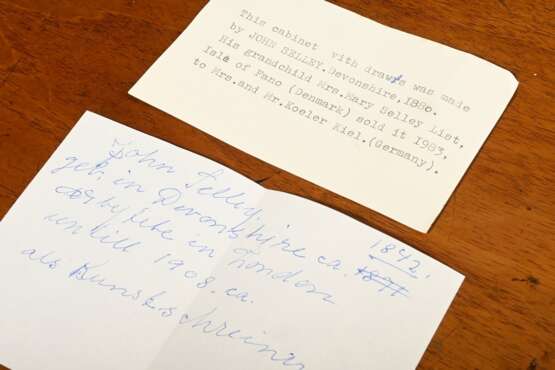 This cabinet vith drawes was made
by JOHN SELLEY.Devonshire,1880.
His grandchild Mrs.Mary Selley List,
Isle of Fano (Denmark) sold it 1983,
to Mrs.and Mr.Koeler Kiel.(Germany).
John Selley.
geb. in Devonshire ca. 1842.
in London
untill 1908. ca.
als Kunstschreiner